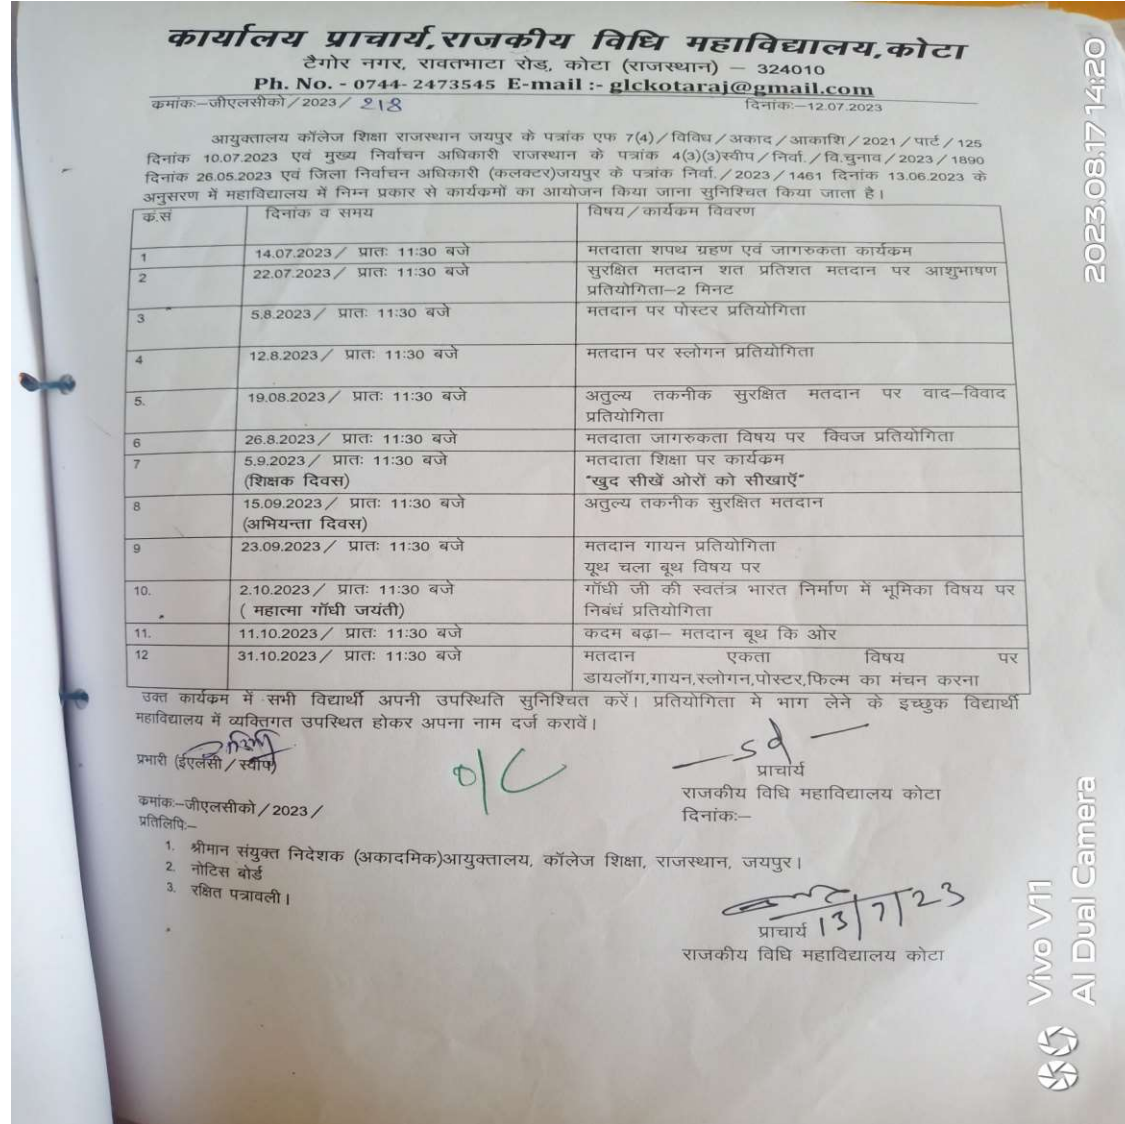 कार्यालय प्राचार्य,राजकीय विधि महाविद्यालय,कोटा
टैगोर नगर, रावतभाटा रोड़, कोटा (राजस्थान) – 324010
Ph. No. - 0744- 2473545 E-mail :- glckotaraj@gmail.com
क्रमांकः–जीएलसीको/2023/ 218 दिनांकः–12.07.2023
आयुक्तालय कॉलेज शिक्षा राजस्थान जयपुर के पत्रांक एफ 7(4)/विविध/अकाद/आकाशि/2021/पार्ट/125
दिनांक 10.07.2023 एवं मुख्य निर्वाचन अधिकारी राजस्थान के पत्रांक 4(3)(3)स्वीप/निर्वा./वि.चुनाव/2023/1890
दिनांक 26.05.2023 एवं जिला निर्वाचन अधिकारी (कलक्टर)जयपुर के पत्रांक निर्वा./2023/1461 दिनांक 13.06.2023 के
अनुसरण में महाविद्यालय में निम्न प्रकार से कार्यकमों का आयोजन किया जाना सुनिश्चित किया जाता है।
कं.सं दिनांक व समय विषय/कार्यकम विवरण
1 14.07.2023/ प्रातः 11:30 बजे मतदाता शपथ ग्रहण एवं जागरुकता कार्यकम
2 22.07.2023/ प्रातः 11:30 बजे सुरक्षित मतदान शत प्रतिशत मतदान पर आशुभाषण
प्रतियोगिता–2 मिनट
3 5.8.2023/ प्रातः 11:30 बजे मतदान पर पोस्टर प्रतियोगिता
4 12.8.2023/ प्रातः 11:30 बजे मतदान पर स्लोगन प्रतियोगिता
5. 19.08.2023/ प्रातः 11:30 बजे अतुल्य तकनीक सुरक्षित मतदान पर वाद–विवाद
प्रतियोगिता
6 26.8.2023/ प्रातः 11:30 बजे मतदाता जागरुकता विषय पर क्विज प्रतियोगिता
7 5.9.2023/ प्रातः 11:30 बजे मतदाता शिक्षा पर कार्यकम
(शिक्षक दिवस) "खुद सीखें ओरों को सीखाऍं"
8 15.09.2023/ प्रातः 11:30 बजे अतुल्य तकनीक सुरक्षित मतदान
(अभियन्ता दिवस)
9 23.09.2023/ प्रातः 11:30 बजे मतदान गायन प्रतियोगिता
यूथ चला बूथ विषय पर
10. 2.10.2023/ प्रातः 11:30 बजे गॉधी जी की स्वतंत्र भारत निर्माण में भूमिका विषय पर
( महात्मा गॉधी जयंती) निबंधं प्रतियोगिता
11. 11.10.2023/ प्रातः 11:30 बजे कदम बढ़ा– मतदान बूथ कि ओर
12 31.10.2023/ प्रातः 11:30 बजे मतदान एकता विषय पर
डायलॉग,गायन,स्लोगन,पोस्टर,फिल्म का मंचन करना
उक्त कार्यकम में सभी विद्यार्थी अपनी उपस्थिति सुनिश्चित करें। प्रतियोगिता मे भाग लेने के इच्छुक विद्यार्थी
महाविद्यालय में व्यक्तिगत उपस्थित होकर अपना नाम दर्ज करावें।
– sd –
प्रभारी (ईएलसी/स्वीप) o/c प्राचार्य
राजकीय विधि महाविद्यालय कोटा
क्रमांकः–जीएलसीको/2023/ दिनांकः–
प्रतिलिपिः–
1. श्रीमान संयुक्त निदेशक (अकादमिक)आयुक्तालय, कॉलेज शिक्षा, राजस्थान, जयपुर।
2. नोटिस बोर्ड
3. रक्षित पत्रावली।
प्राचार्य 13/7/23
राजकीय विधि महाविद्यालय कोटा
2023.08.17 14:20
Vivo V11
AI Dual Camera